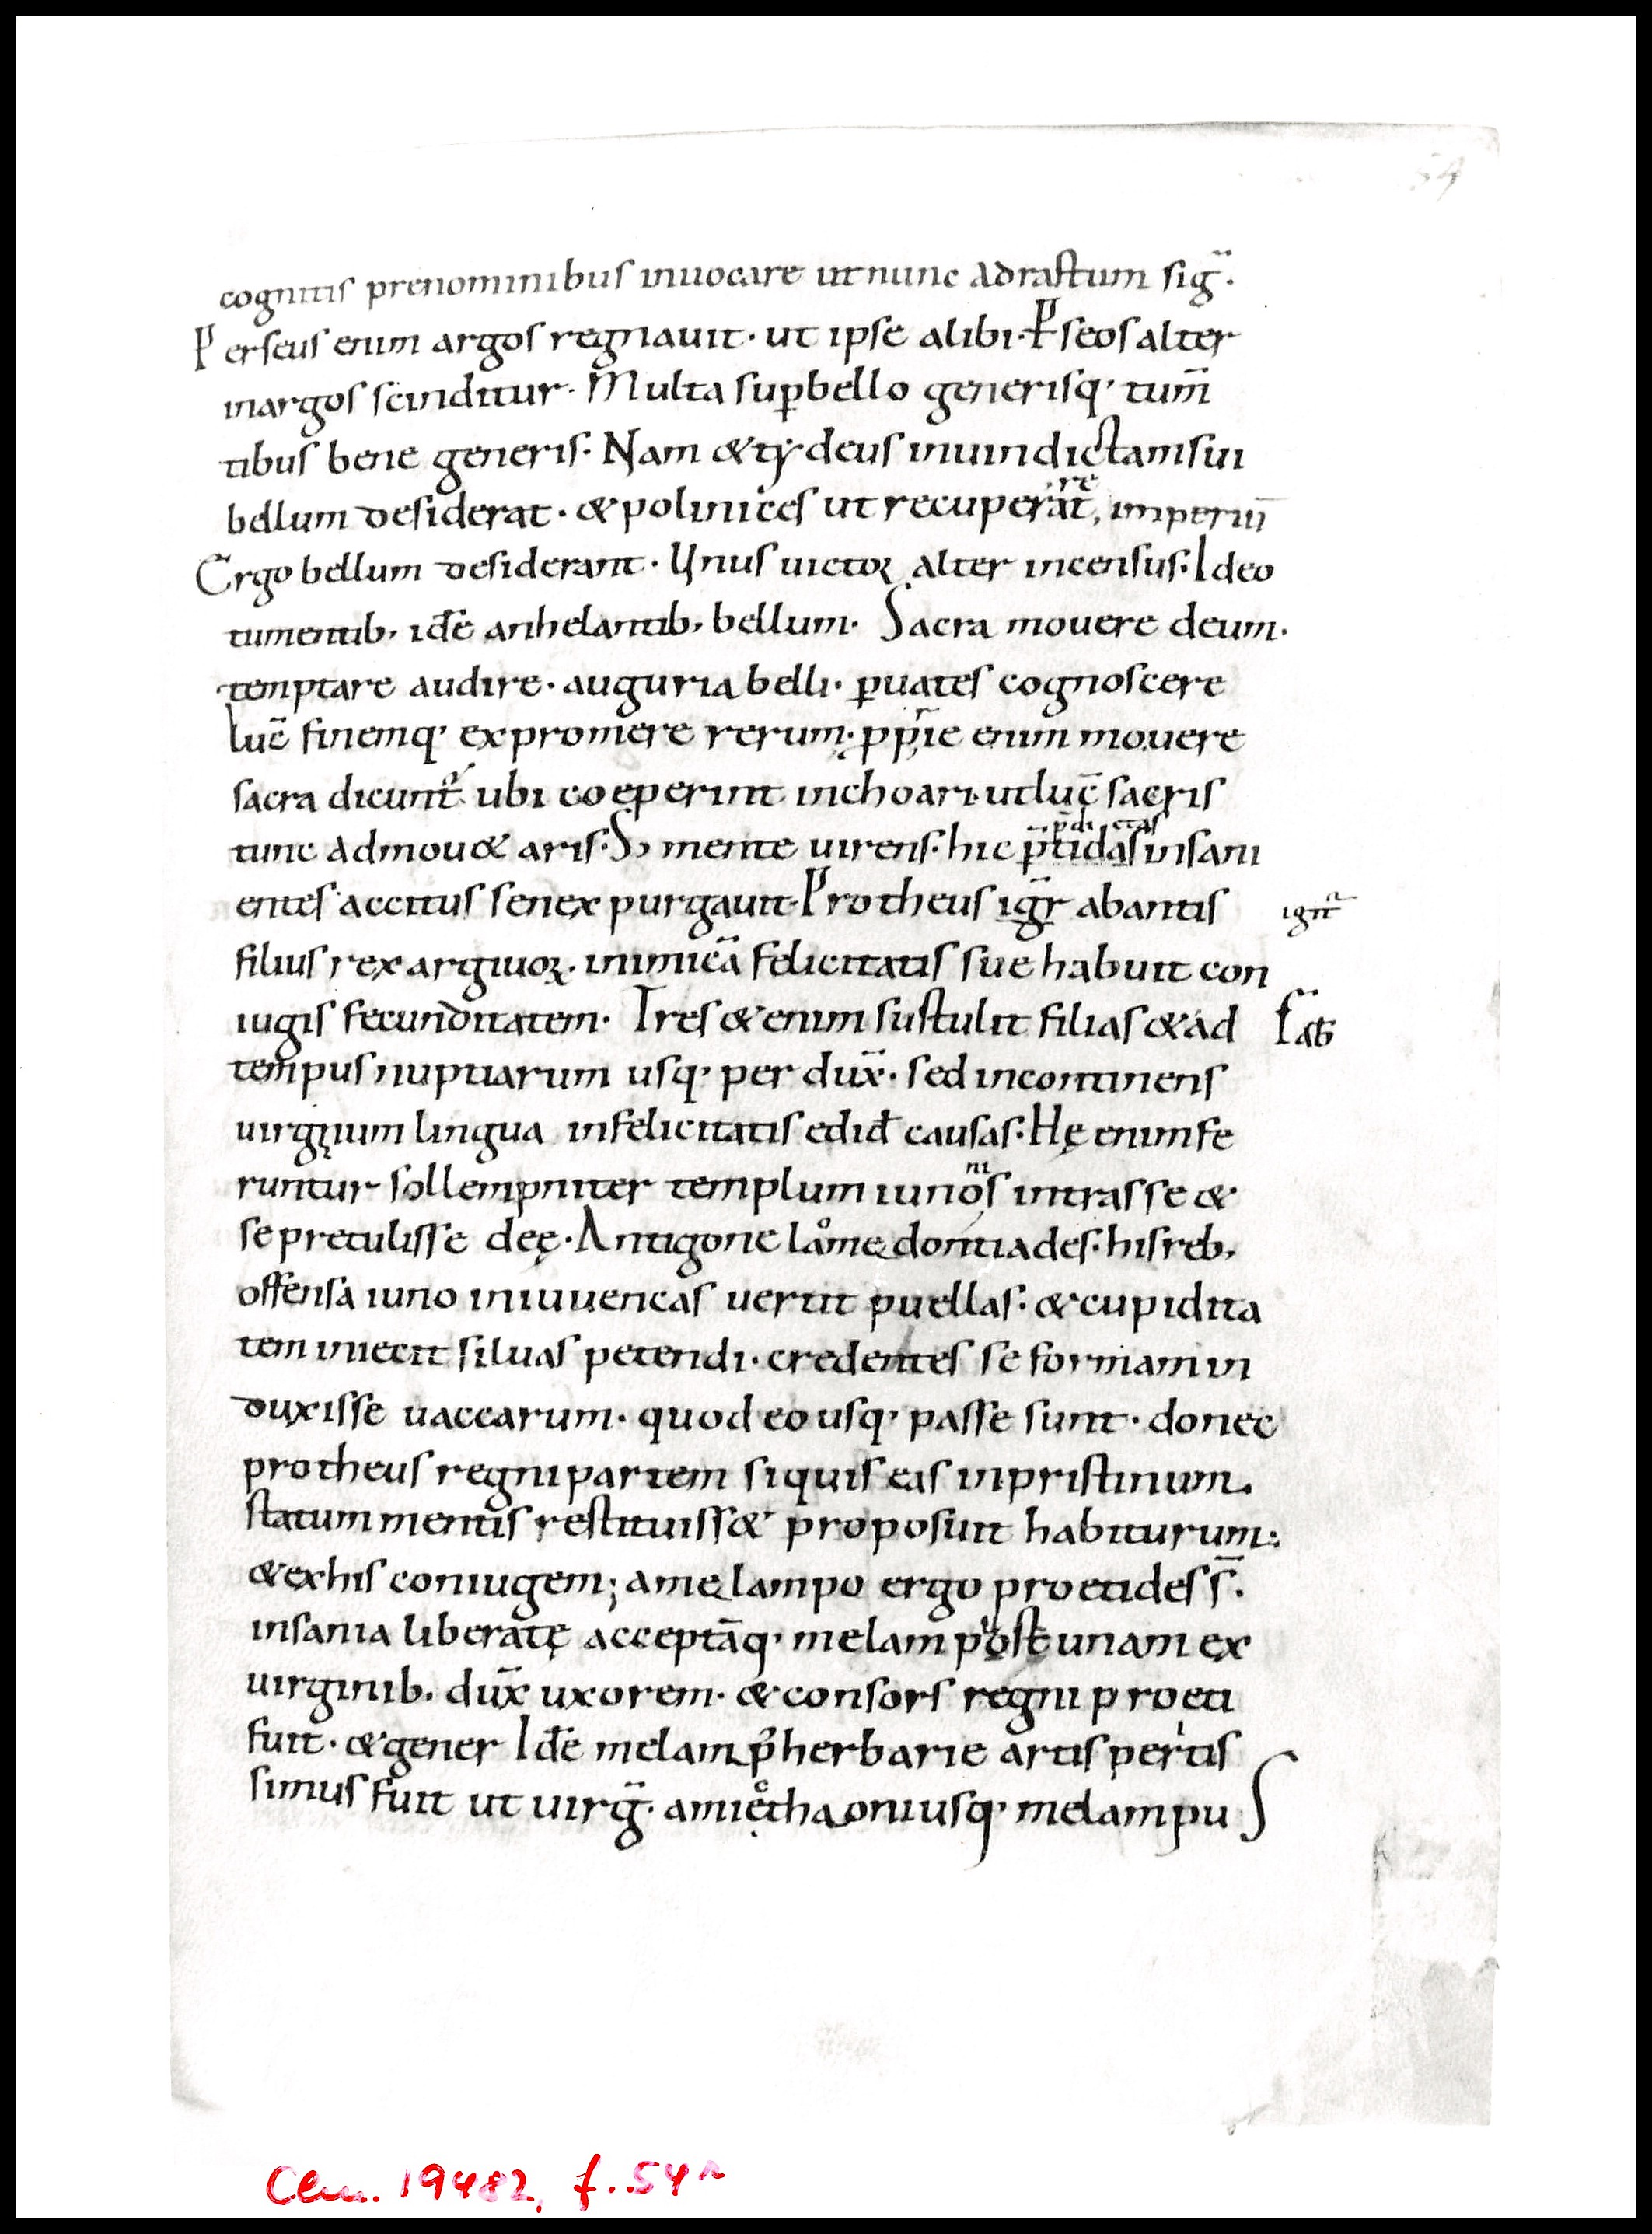 54
cognitis prenominibus inuocare ut nunc Adrastum sig̅.
Perseus enim argos regnauit. ut ipse alibi. P̲seos alter
inargos scinditur. Multa sup̲bello generisq; tum̅
tibus bene generis. Nam & tẏdeus inuindictamsui
bellum desiderat. & polinices ut recuperat, re imperiū
Ergo bellum desiderant. Unus uictoꝝ alter incensus. Ideo
tumentib; idē anhelantib; bellum. Sacra mouere deum.
temptare audire. auguria belli. ꝑuates cognoscere
Luc̅ finemq; expromere rerum. ꝓpꝛie enim mouere
sacra dicunt᷑ ubi coeperint inchoari. ut luc̅ sacris
tunc admou& aris. S; mente uirens. hic p̅tidas insani
entes accitus senex purgauit. Protheus igr̅ abantis
igit᷑
filius rex argiuoꝝ. inimicā felicitatis sue habuit con
iugis fecunditatem. Tres & enim sustulit filias & ad
tempus nuptiarum usq; per dux̅. sed incontinens
uirginum lingua infelicitatis edid̅ causas. Hę enim fe
runtur sollempniter templum iunoniſ intrasse &
se pretulisse deę. Antigone laomedontiades. his reb;
offensa iuno iniuuencas uertit puellas. & cupidita
tem iniecit siluas petendi. credentes se formam in
duxisse uaccarum. quod eo usq; passe sunt. donec
protheus regni partem siquis eas inpristinum.
statum mentis restituiss& proposuit habiturum.
& exhis coniugem; amelampo ergo proetides s̅.
insania liberatę acceptāq; melampꝰ post unam ex
uirginib; dux̅ uxorem. & consors regni proeti
fuit. & gener Idē melamp᷒ herbarie artis peritis
simus fuit ut uirg̅. amiethaoniusq; melampuſ
Clm. 19482, f. 54r